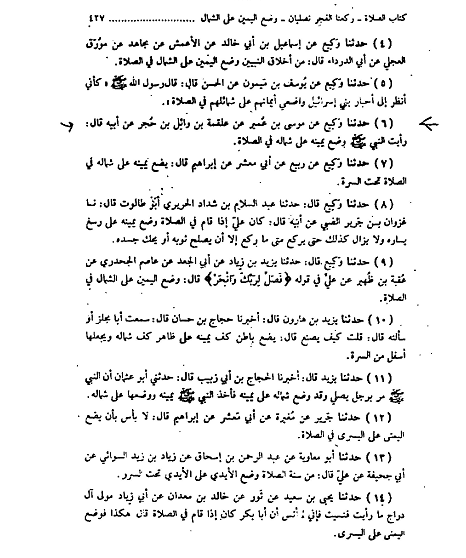 كتاب الصلاة - ركعتا الفجر تصليان - وضع اليمين على الشمال .......................... ٤٢٧
(٤) حدثنا وكيع عن إسماعيل بن أبي خالد عن الأعمش عن مجاهد عن مورّق
العجلي عن أبي الدرداء قال: من أخلاق النبيين وضع اليمين على الشمال في الصلاة.
(٥) حدثنا وكيع عن يوسف بن ميمون عن الحسن قال: قال رسول الله ﷺ «كأني
أنظر إلى أحبار بني إسرائيل واضعي أيمانهم على شمائلهم في الصلاة».
(٦) حدثنا وكيع عن موسى بن عُمير عن علقمة بن وائل بن حُجر عن أبيه قال:
رأيت النبي ﷺ وضع يمينه على شماله في الصلاة.
(٧) حدثنا وكيع عن ربيع عن أبي معشر عن إبراهيم قال: يضع يمينه على شماله في
الصلاة تحت السرة.
(٨) حدثنا وكيع قال: حدثنا عبد السلام بن شداد الحريري أبو طالوت قال: نا
غزوان بن جرير الضبي عن أبيه قال: كان عليّ إذا قام في الصلاة وضع يمينه على رسغ
يساره ولا يزال كذلك حتى يركع متى ما ركع إلا أن يصلح ثوبه أو يحك جسده.
(٩) حدثنا وكيع قال: حدثنا يزيد بن زياد عن أبي الجعد عن عاصم الجحدري عن
عقبة بن ظهير عن عليّ في قوله ﴿فَصَلِّ لِرَبِّكَ وَانْحَرْ﴾ قال: وضع اليمين على الشمال في
الصلاة.
(١٠) حدثنا يزيد بن هارون قال: أخبرنا حجاج بن حسان قال: سمعت أبا مجلز أو
سألته قال: قلت كيف يصنع قال: يضع باطن كف يمينه على ظاهر كف شماله ويجعلها
أسفل من السرة.
(١١) حدثنا يزيد قال: أخبرنا الحجاج بن أبي زينب قال: حدثني أبو عثمان أن النبي
ﷺ مر برجل يصلي وقد وضع شماله على يمينه فأخذ النبي ﷺ يمينه ووضعها على شماله.
(١٢) حدثنا جرير عن مغيرة عن أبي معشر عن إبراهيم قال: لا بأس بأن يضع
اليمنى على اليسرى في الصلاة.
(١٣) حدثنا أبو معاوية عن عبد الرحمن بن إسحاق عن زياد بن زيد السوائي عن
أبي جحيفة عن عليّ قال: من سنة الصلاة وضع الأيدي على الأيدي تحت السرر.
(١٤) حدثنا يحيى بن سعيد عن ثور عن خالد بن معدان عن أبي زياد مولى آل
دراج ما رأيت فنسيت فإني لم أنس أن أبا بكر كان إذا قام في الصلاة قال هكذا فوضع
اليمنى على اليسرى.